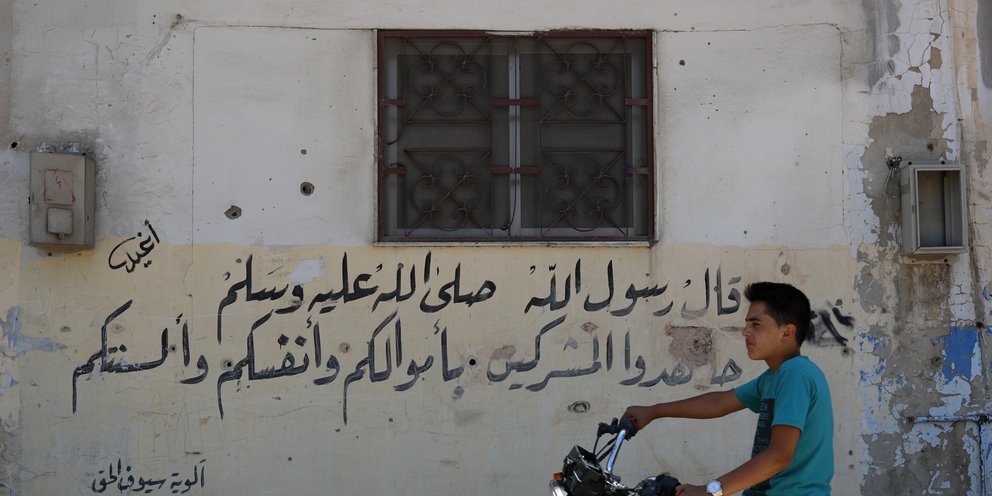 قال رسول الله صلى الله عليه وسلم
جاهدوا المشركين بأموالكم وأنفسكم وألسنتكم
ألوية سيوف الحق